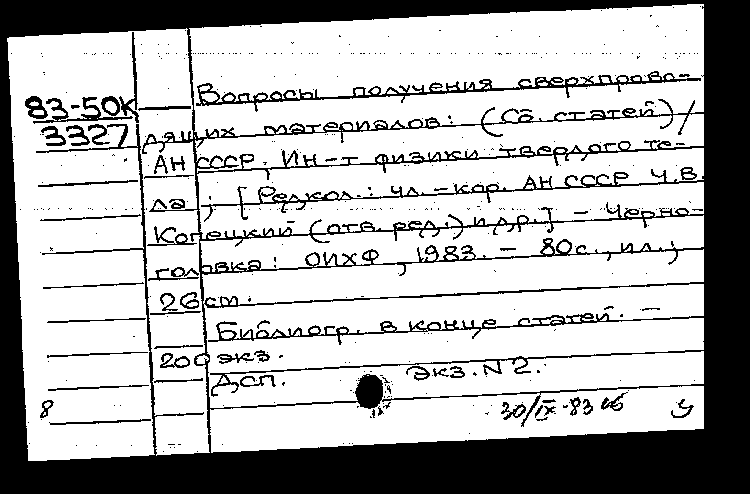 Вопросы получения сверхпрово-
83-50К
3327 дящих материалов: (Сб. статей) /
АН СССР; Ин-т физики твердого те-
ла; [Редкол.: чл.-кор. АН СССР Ч.В.
Копецкий (отв. ред.) и др.] - Черно-
головка: ОИХФ, 1983. - 80с., ил.;
26 см.
Библиогр. в конце статей. -
200 экз.
Дсп. Экз. N 2.
8 30/IX-83